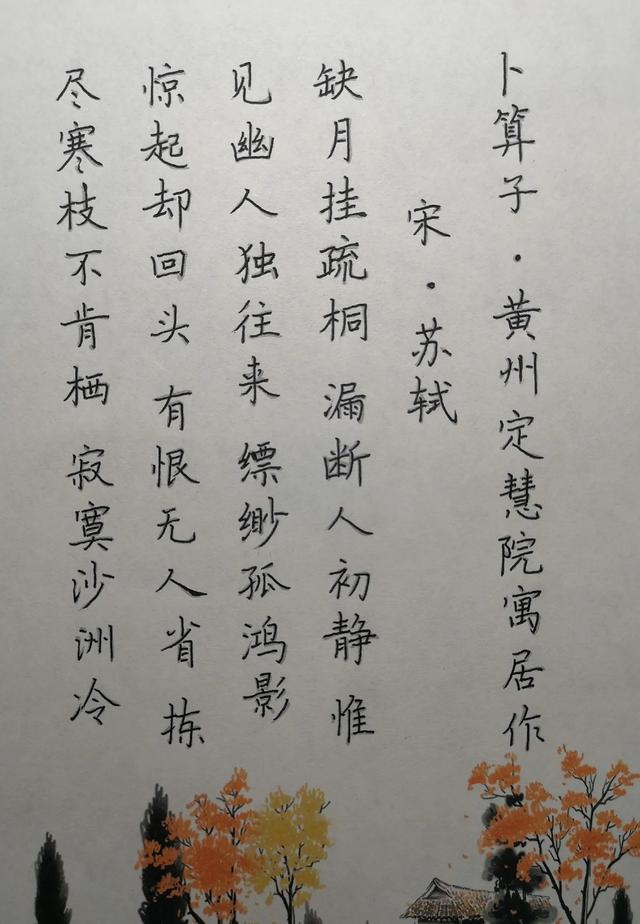 卜算子·黄州定慧院寓居作
宋·苏轼
缺月挂疏桐 漏断人初静 惟
见幽人独往来 缥缈孤鸿影
惊起却回头 有恨无人省 拣
尽寒枝不肯栖 寂寞沙洲冷